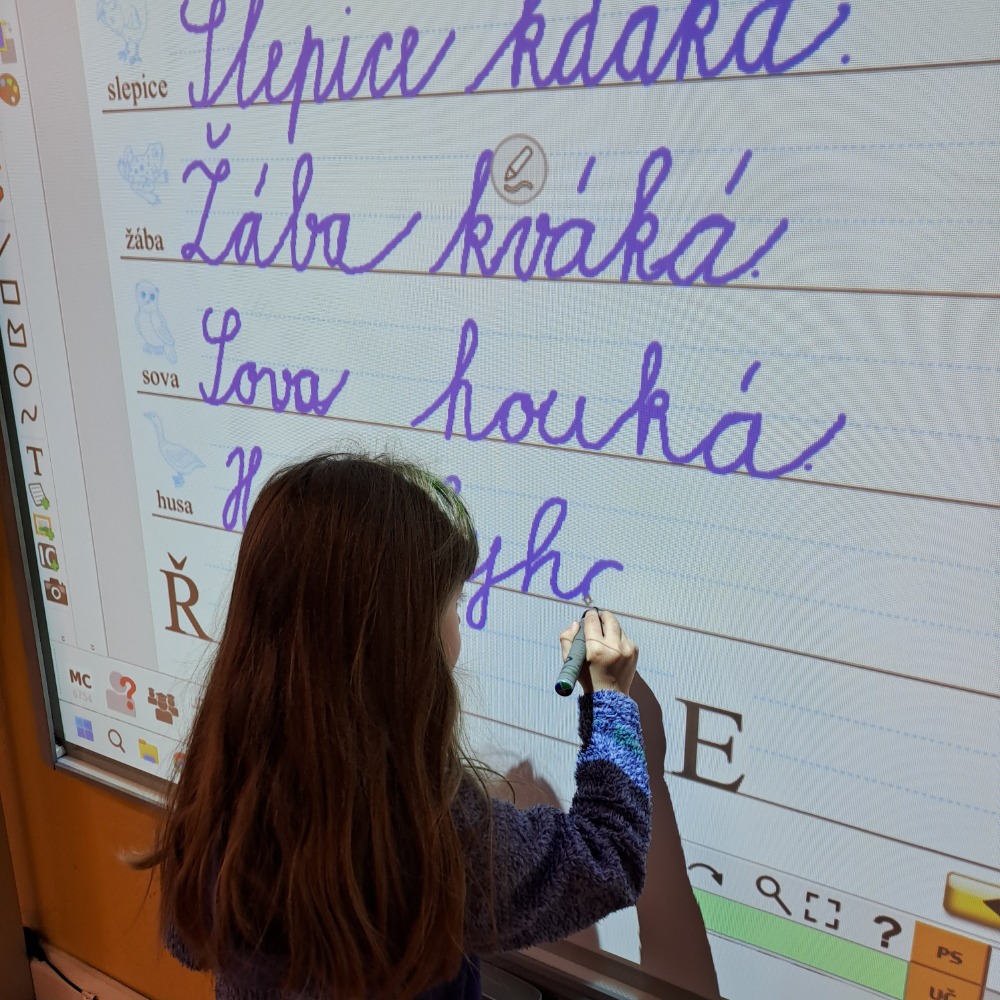 slepice Slepice kdáká.
žába Žába kváká.
sova Sova houká.
husa
Ř E
MC
T
?
?
PS
UČ